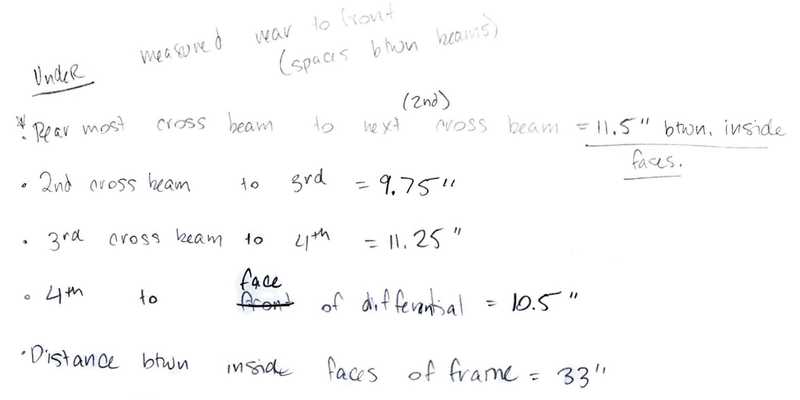 measured rear to front
(spaces btwn beams)
Under
* Rear most cross beam to next (2nd) cross beam = 11.5" btwn. inside faces.
• 2nd cross beam to 3rd = 9.75"
• 3rd cross beam to 4th = 11.25"
• 4th to face of differential = 10.5"
• Distance btwn inside faces of frame = 33"